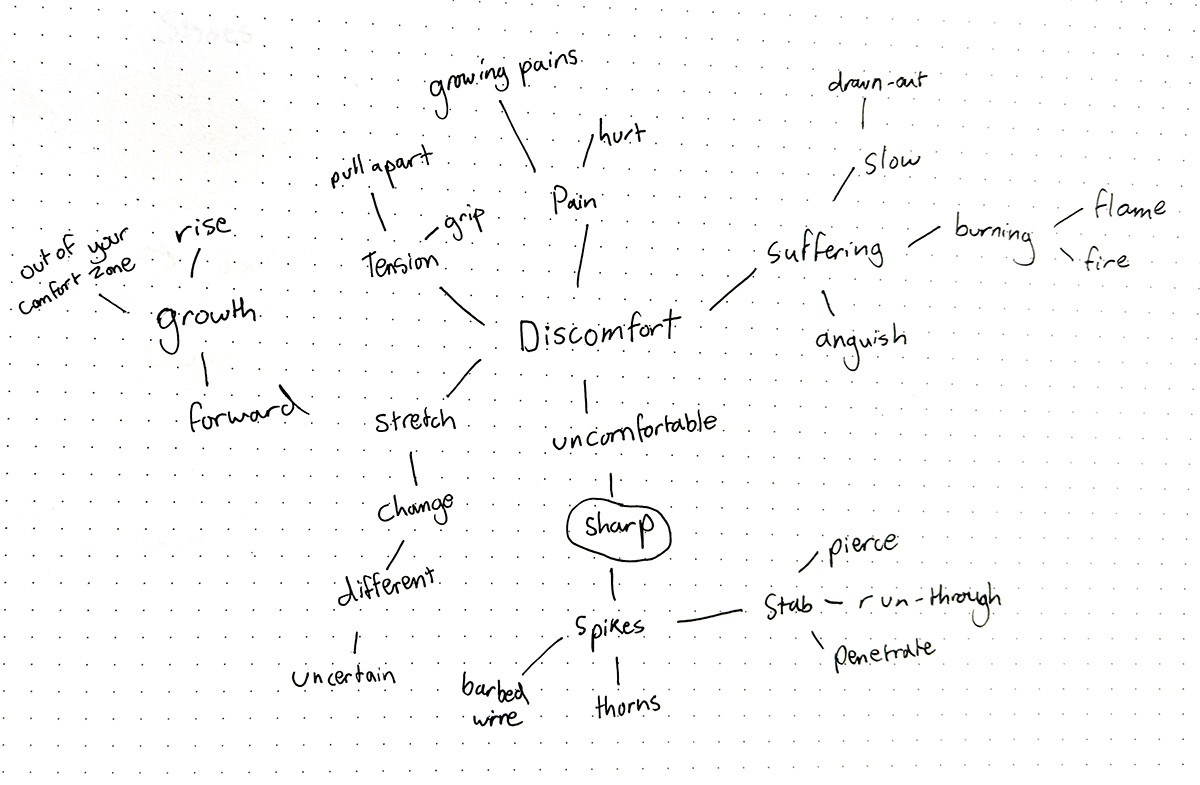 growing pains
drawn-out
hurt
pull apart
slow
Pain
grip
flame
rise
out of your
comfort zone
Tension
suffering
burning
fire
growth
Discomfort
anguish
forward
stretch
uncomfortable
change
sharp
pierce
different
Stab
run-through
Spikes
penetrate
uncertain
barbed
wire
thorns